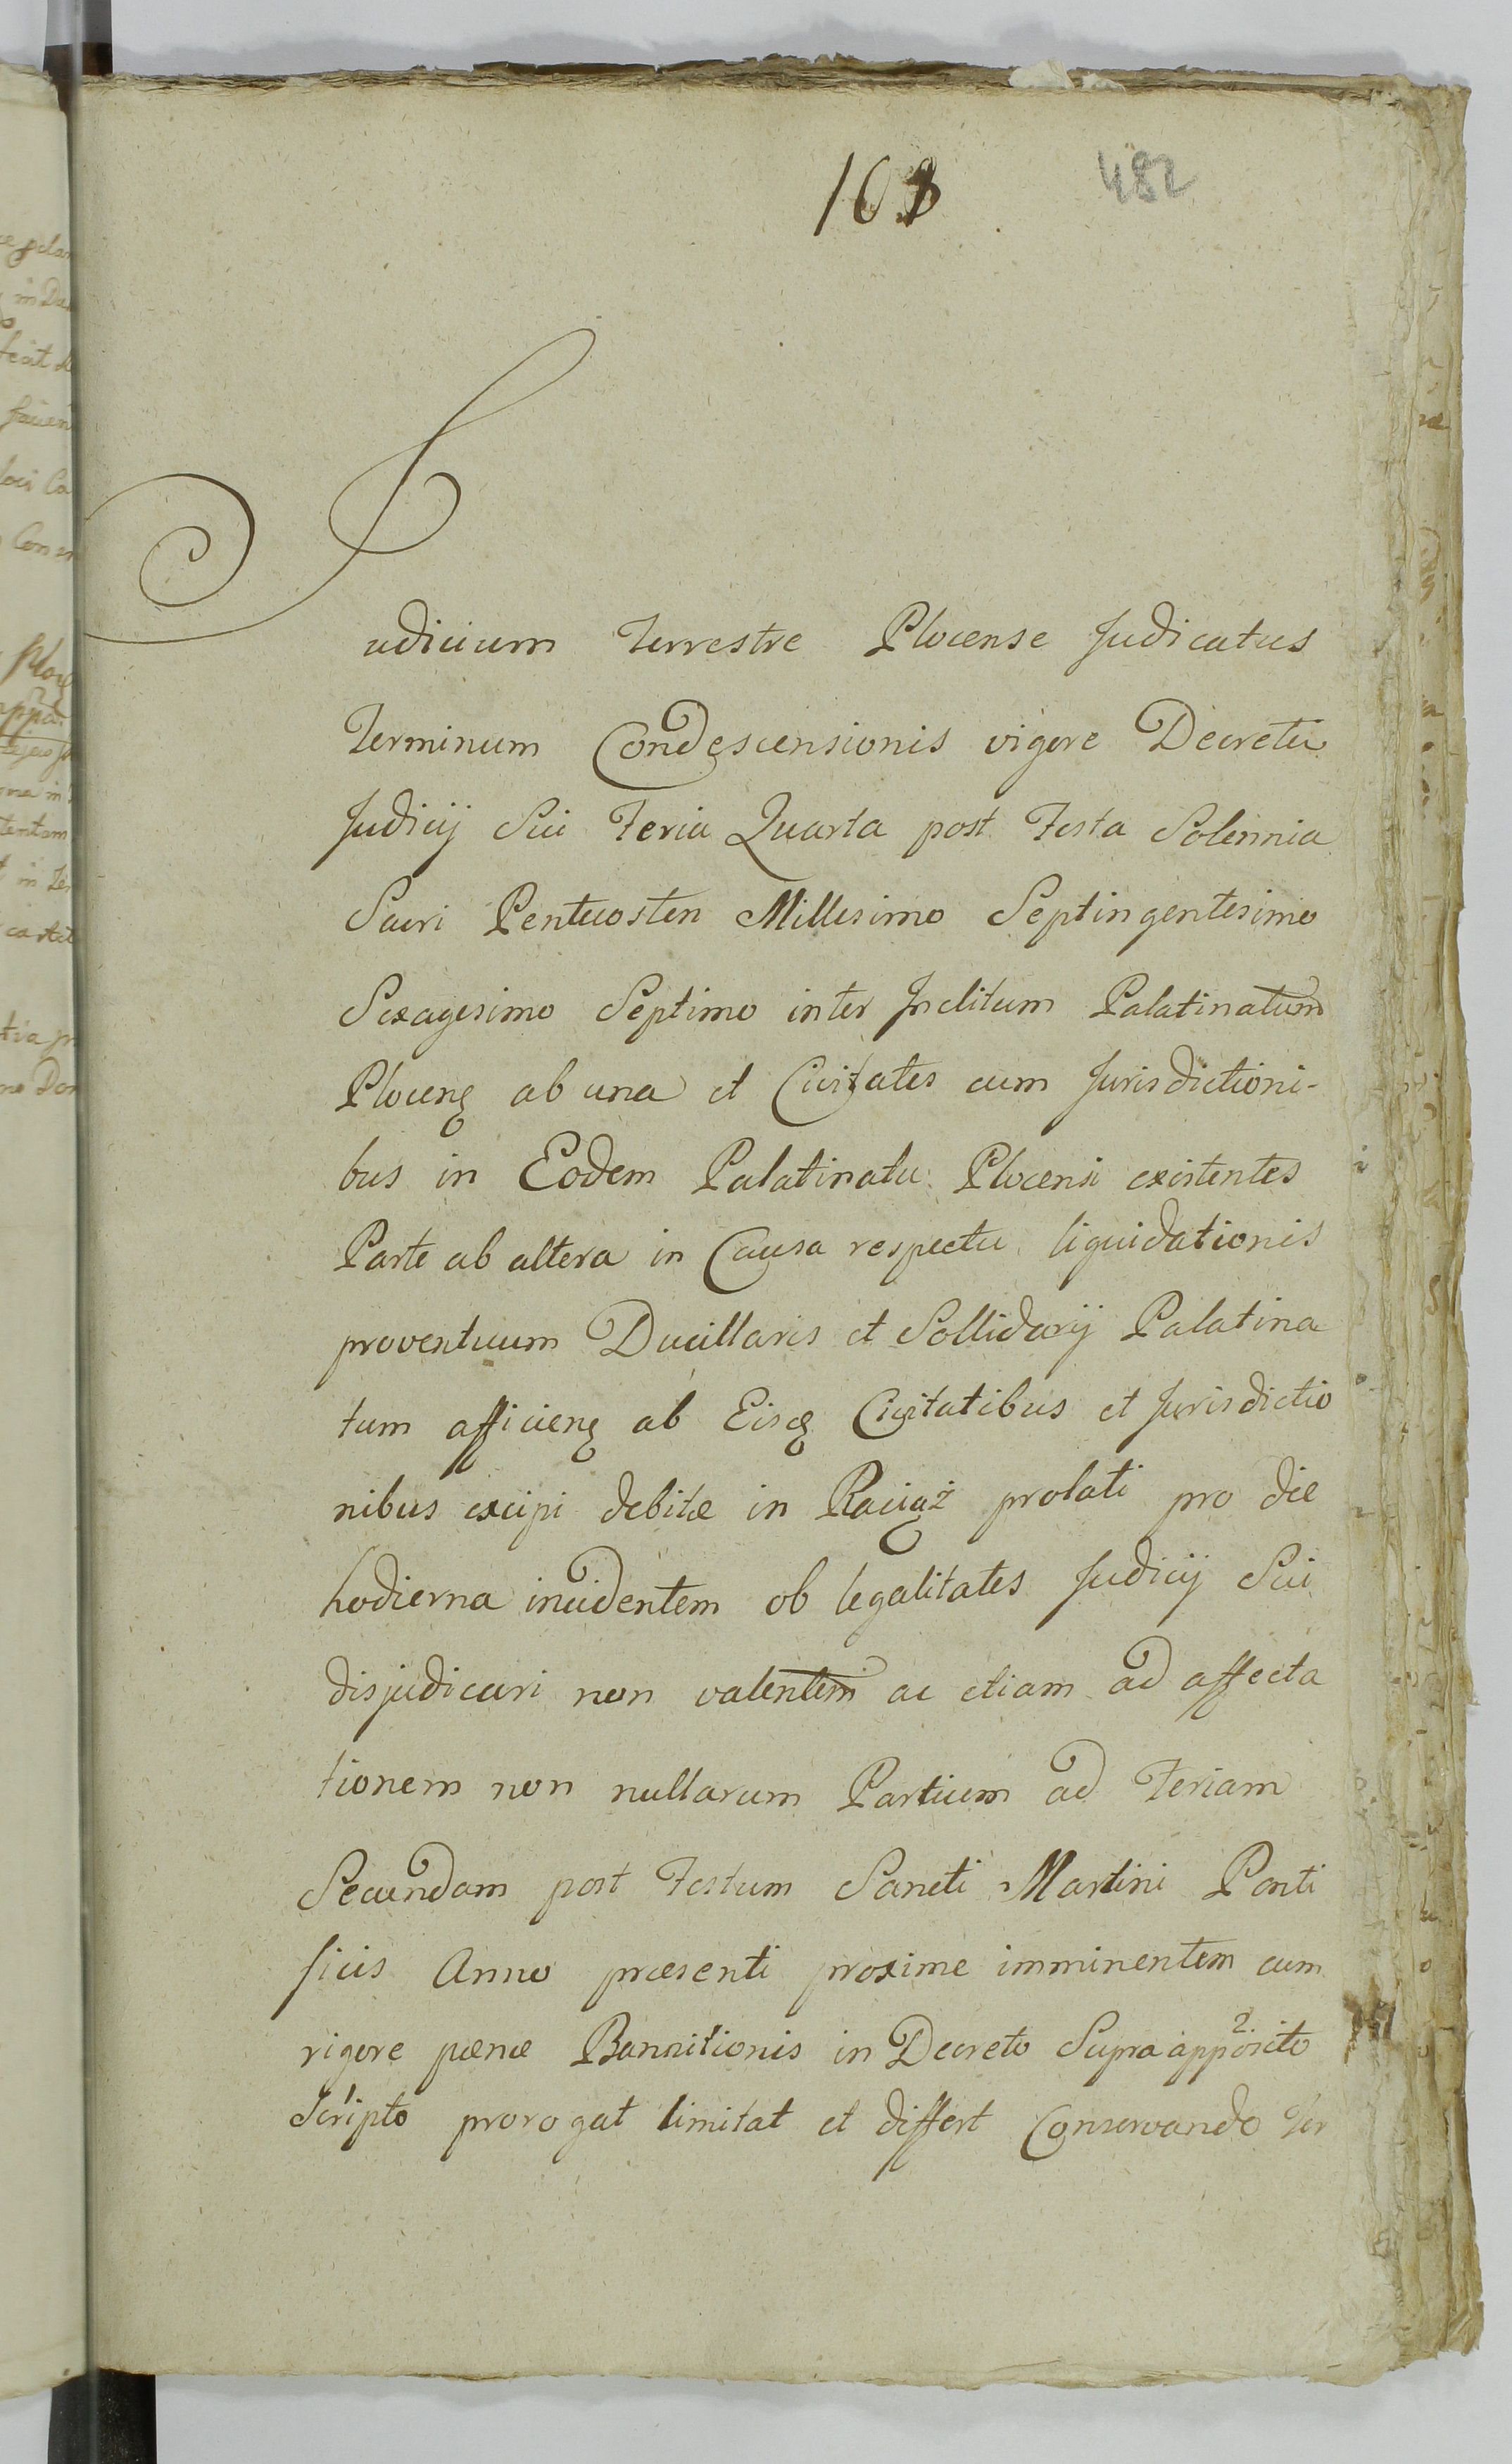 163 482
Judicium Terrestre Plocense Judicatus
Terminum Condescensionis vigore Decreti
Judicij Sui Feria Quarta post Festa Solennia
Sacri Pentecosten Millesimo Septingentesimo
Sexagesimo Septimo inter Inclitum Palatinatum
Plocenę ab una et Civitates cum Jurisdictioni-
bus in Eodem Palatinatu Plocensi existentes
Parte ab altera in Causa respectu liquidationis
proventuum Ducillaris et Sollidarij Palatina
tum afficienę ab Eisdę Civitatibus et Jurisdictio
nibus excipi debitæ in Raciąż prolati pro die
hodierna incidentem ob legalitates Judicij Sui
disjudicari non valentem ac etiam ad affecta
tionem non nullarum Partium ad Feriam
Secundam post Festum Sancti Martini Ponti
ficis Anno præsenti proxime imminentem cum
rigore pænæ Bannitionis in Decreto Supra apposito 2
Scripto 1 prorogat limitat et differt Conservando Ter